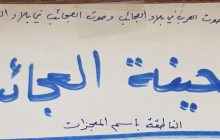 صوت العرب في بلاد العجائب وصوت العجائب في بلاد
حيفة العجائ
الناطقة باسم المعجزات